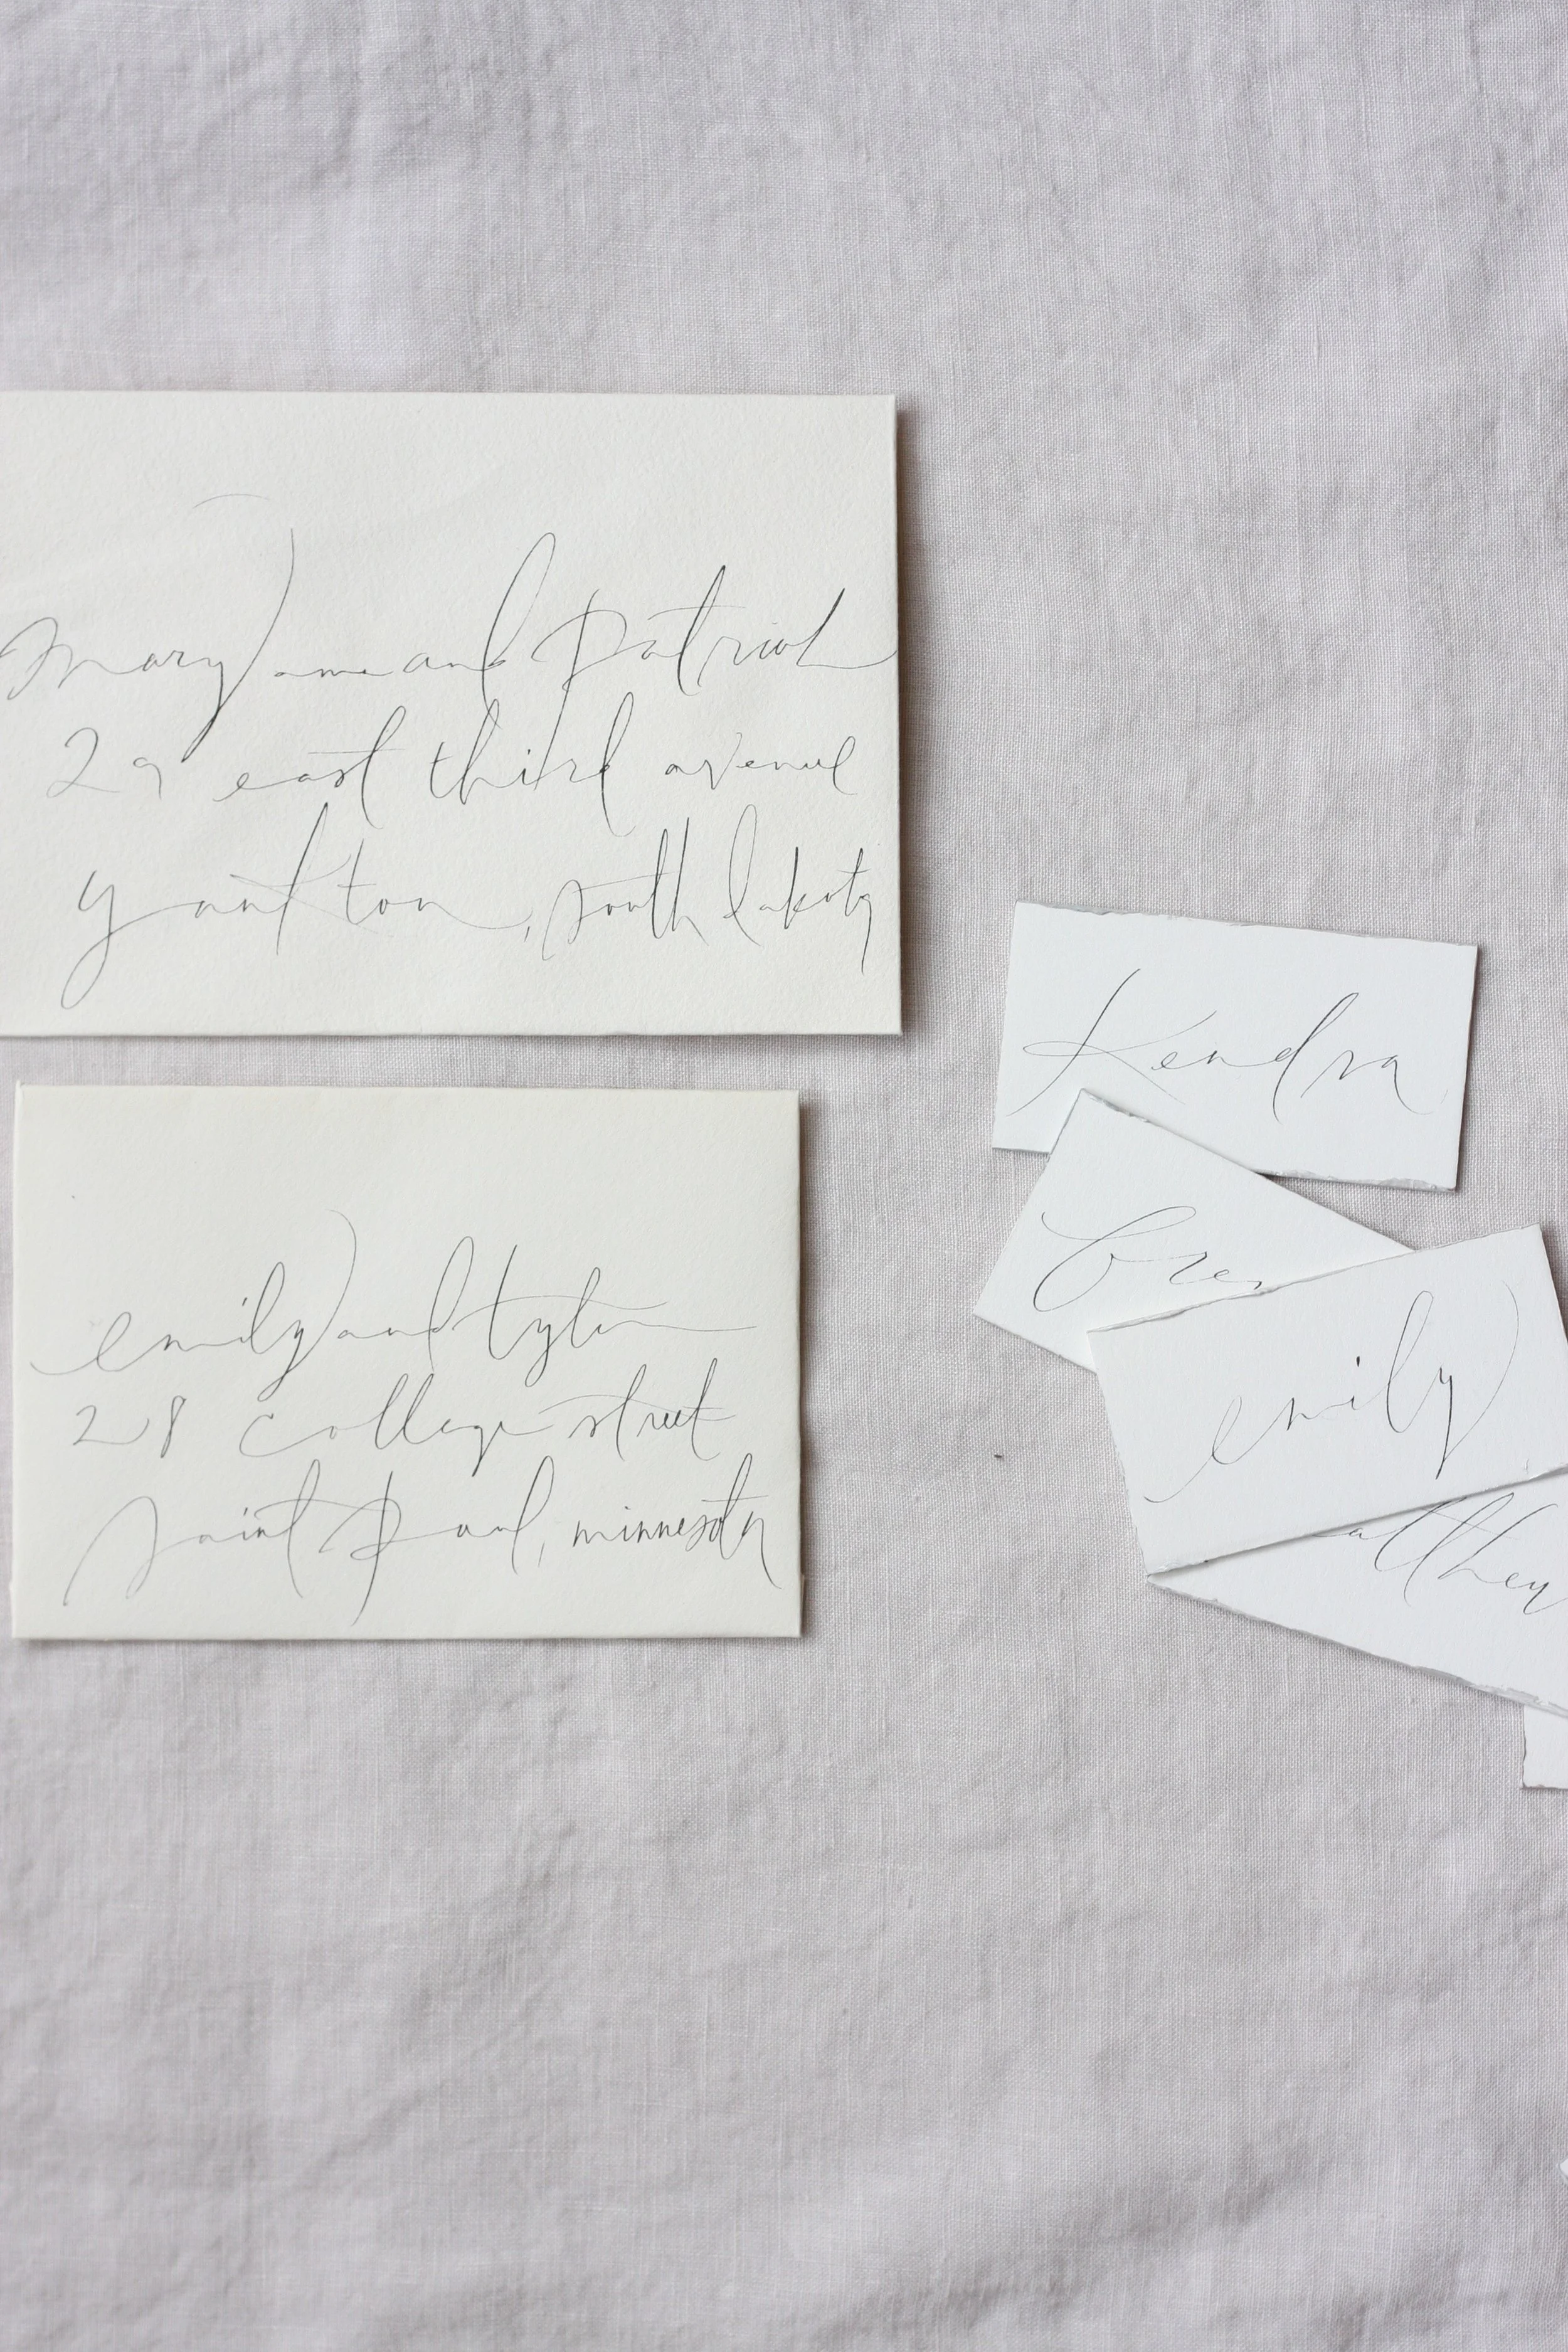 mary anne and patrick
29 east third avenue
yankton, south dakota
emily and tyler
28 college street
saint paul, minnesota
Kendra
emily